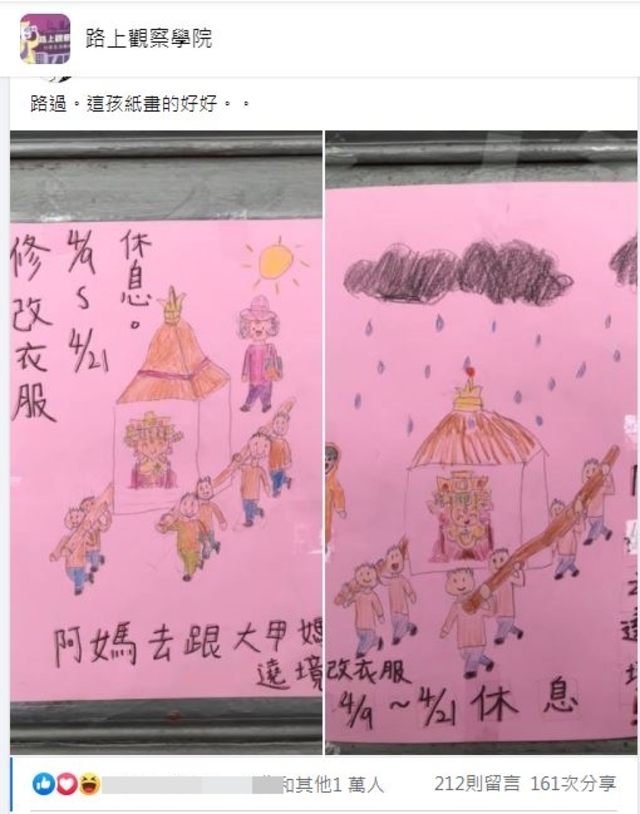 路上觀察學院
路過。這孩紙畫的好好。。
修改衣服
4/9~4/21
休息。
阿媽去跟大甲媽
遶境
改衣服
4/9~4/21休息
和其他1 萬人
212則留言 161次分享